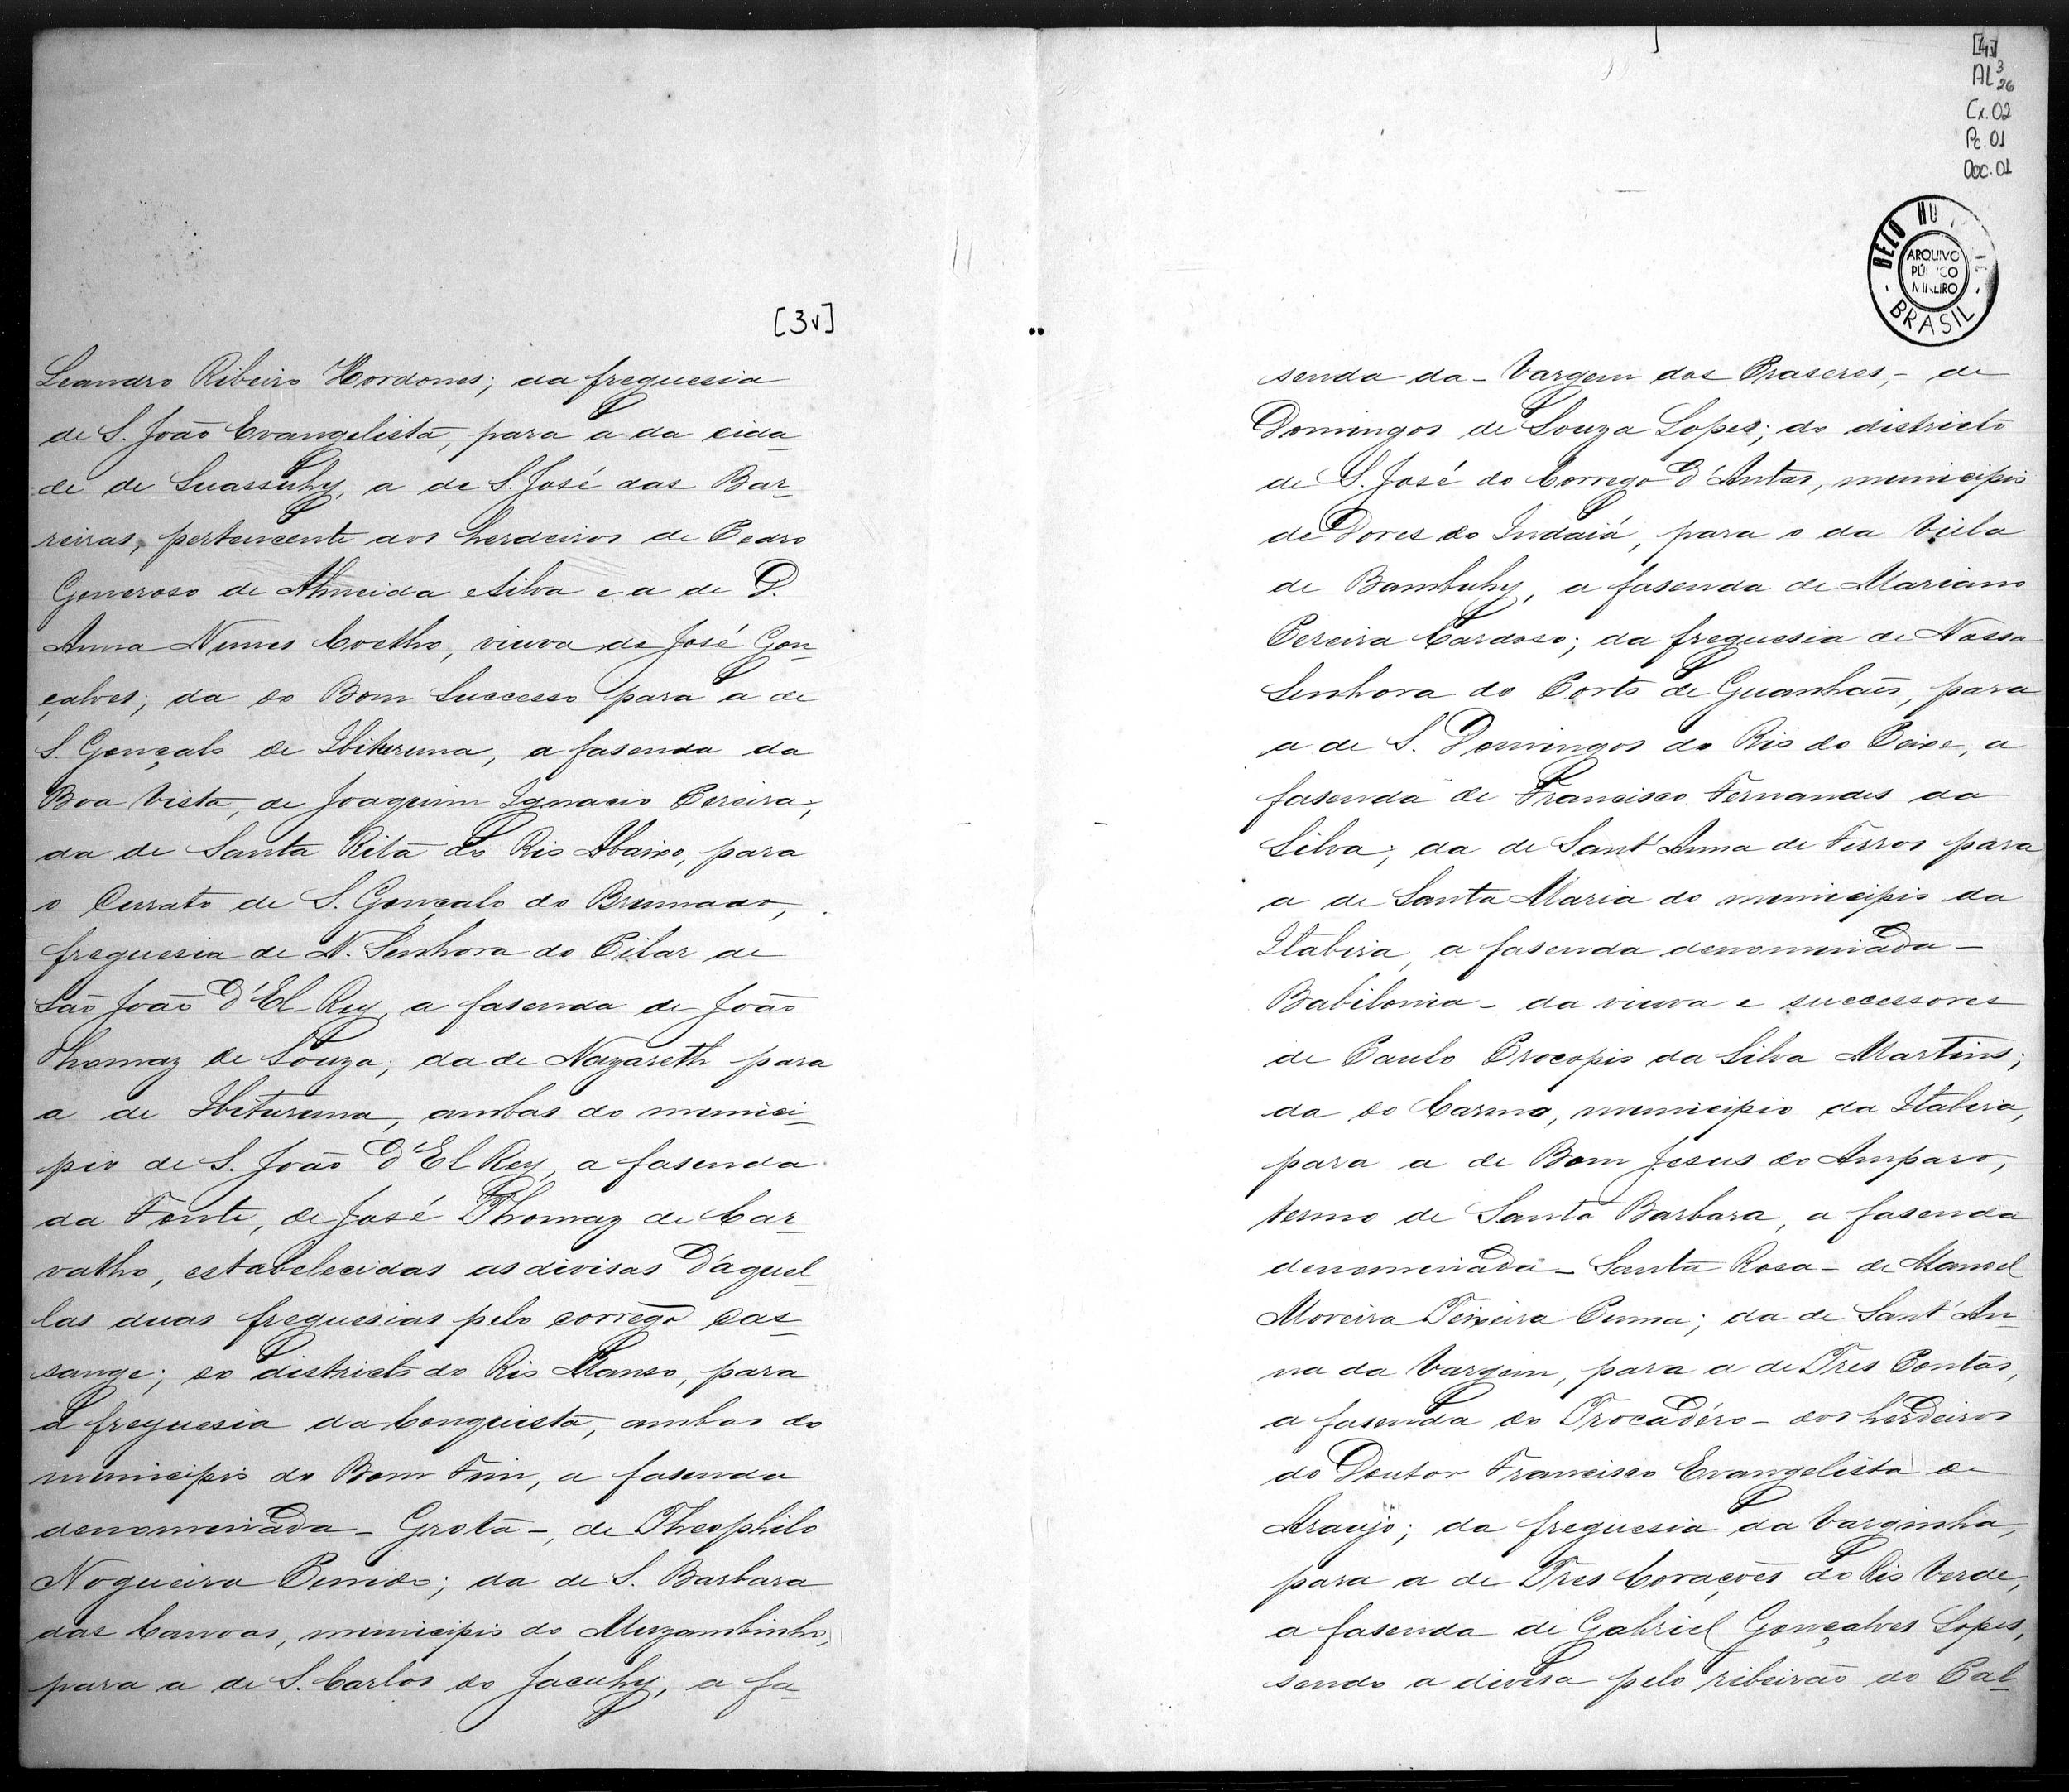 [3v]
Leandro Ribeiro Hordones; da freguesia
de S. João Evangelista, para a da cida
de de Suassuhy, a de S. José das Bar-
reiras, pertencente aos herdeiros de Pedro
Generoso de Almeida e Silva e a de D.
Anna Nunes Coelho, viuva de José Gon
çalves; da do Bom Successo para a de
S. Gonçalo de Ibituruna, a fasenda da
Boa Vista, de Joaquim Ignacio Pereira;
da de Santa Rita do Rio Abaixo, para
o Currato de S. Gonçalo do Brumado,
freguesia de N. Senhora do Pilar de
São João d'El-Rey, a fasenda de João
Thomaz de Souza; da de Nazareth para
a de Ibituruna, ambas do munici-
pio de S. João d'El Rey, a fasenda
da Fonte, de José Thomaz de Car-
valho, estabelecidas as divisas d'aquel-
las duas freguesias pelo corrego Cas-
sange; do districto do Rio Manso, para
a freguesia da Conquista, ambas do
municipio do Bom Fim, a fasenda
denominada - Grota -, de Theophilo
Nogueira Penido; da de S. Barbara
das Canoas, municipio do Muzambinho,
para a de S. Carlos do Jacuhy, a fa-
[4]
AL3
26
Cx. 02
Pc. 01
Doc. 01
BELO HO
ARQUIVO
PÚ CO
MINEIRO
BRASIL
senda da - Vargem dos Praseres, - de
Domingos de Souza Lopes; do districto
de S. José do Corrego d'Antas, municipio
de Dores do Indaiá, para o da Villa
de Bambuhy, a fasenda de Mariano
Pereira Cardoso; da freguesia de Nossa
Senhora do Porto de Guanhães, para
a de S. Domingos do Rio do Peixe, a
fasenda de Francisco Fernandes da
Silva; da de Sant'Anna de Ferros para
a de Santa Maria do municipio da
Itabira, a fasenda denominada -
Babilonia - da viuva e successores
de Paulo Procopio da Silva Martins;
da do Carmo, municipio da Itabira,
para a de Bom Jesus do Amparo,
termo de Santa Barbara, a fasenda
denominada - Santa Rosa - de Manoel
Moreira Teixeira Penna; da de Sant'An-
na da Vargem, para a de Tres Pontas,
a fasenda do Trocadéro - dos herdeiros
do Doutor Francisco Evangelista de
Araujo; da freguesia da Varginha,
para a de Tres Corações do Rio Verde,
a fasenda de Gabriel Gonçalves Lopes,
sendo a divisa pelo ribeirão do Pal-